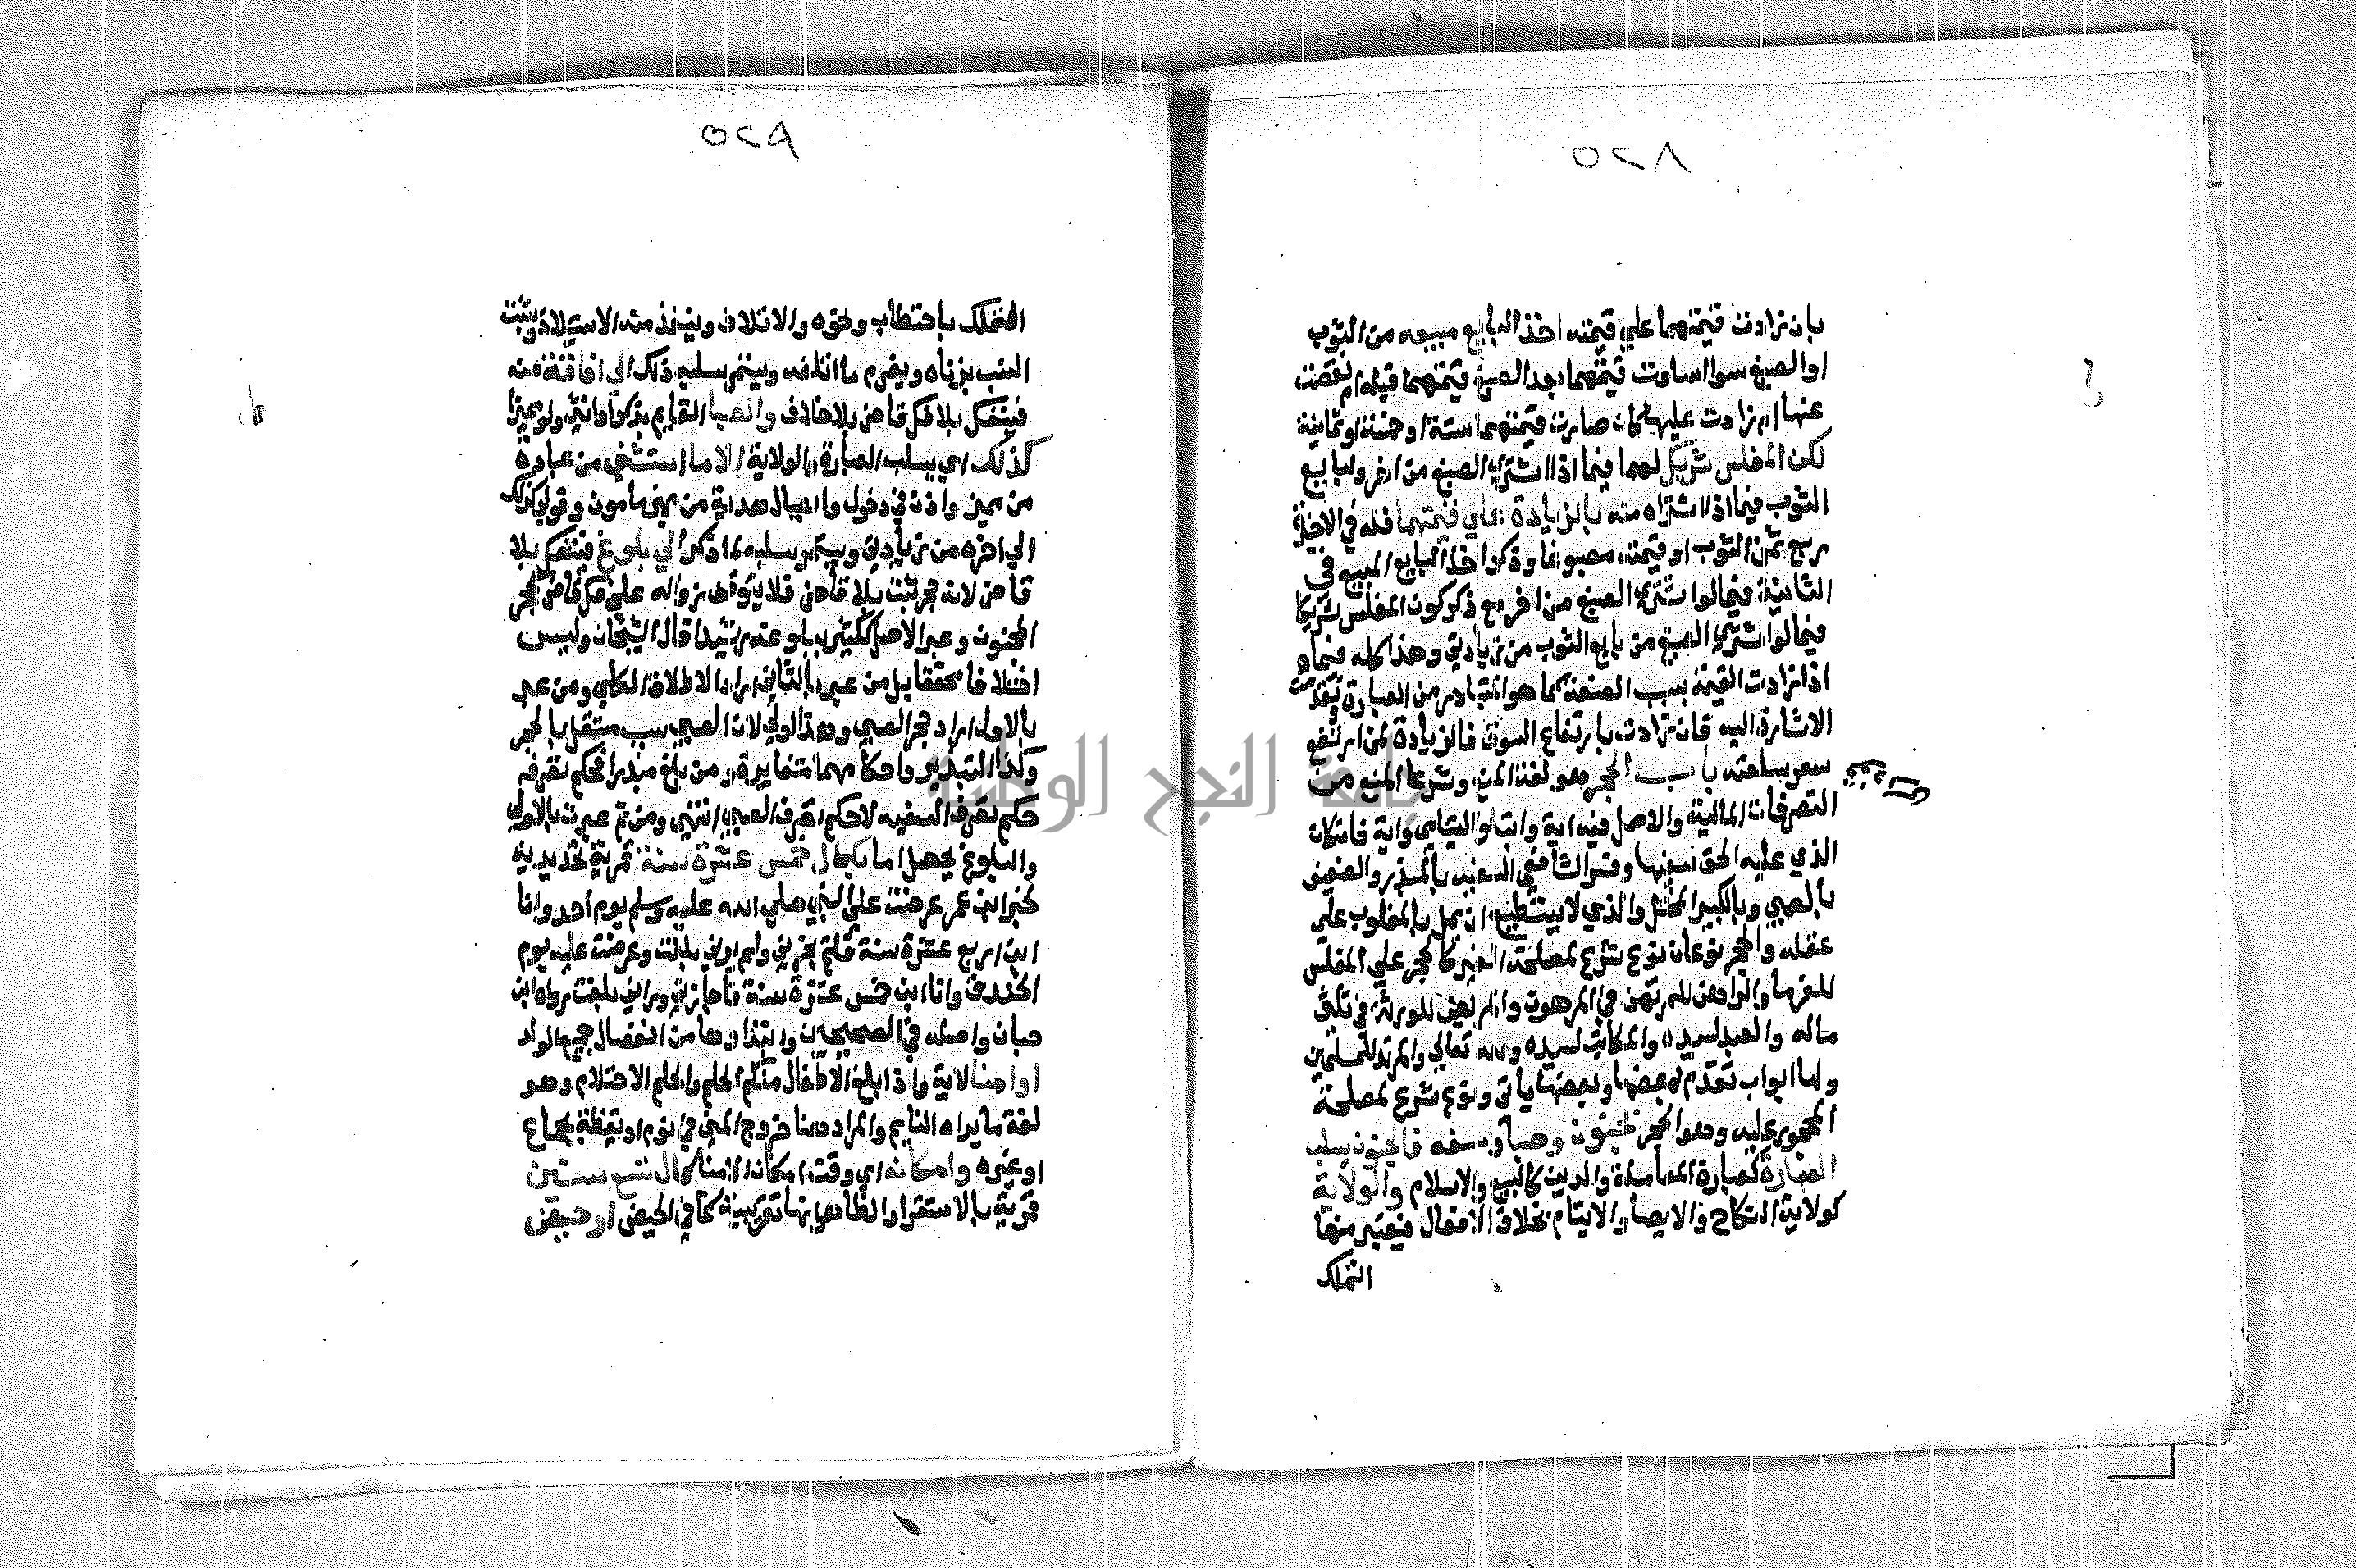 ٥٢٨
بان زادت قيمتهما علي قيمته اخذ البايع مبيعه من الثوب
او الصبغ سوا اساوت قيمتهما بعد الصبغ قيمتهما قبله ام نقصت
عنها ام زادت عليها كان صارت قيمتهما ستة او خمسة او ثمانية
لكن المفلس شريك لهما فيما اذا اشتري الصبغ من اخر ولبايع
الثوب فيما اذا اشتراه منه بالزيادة علي قيمتهما فله في الاخيرة
ربع ثمن الثوب او قيمته مصبوغا وذكر اخذ البايع المبيع في
الثانية فيما لو اشتري الصبغ من اخر مع ذكر كون المفلس شريكا
فيما لو اشتري الصبغ من بايع الثوب من زيادتي وهذا كله فيما
اذا زادت القيمة بسبب الصنعة كما هو المتبادر من العبارة
الاشارة اليه فان زادت بارتفاع السوق فالزيادة لمن ارتفع
سعر سلعته باب الحجر هو لغة المنع وشرعا المنع من
التصرفات المالية والاصل فيه اية وابتلوا اليتامي واية فان كان
الذي عليه الحق سفيها وفسر الشافعي السفيه بالمبذر والضعيف
بالصبي وبالكبير المختل والذي لا يستطيع ان يمل بالمغلوب علي
عقله والحجر نوعان نوع شرع لمصلحة الغير كالحجر علي المفلس
للغرما والراهن للمرتهن في المرهون والمريض للورثة في ثلثي
ماله والعبد لسيده والمكاتب لسيده ولله تعالي والمرتد للمسلمين
ولها ابواب تقدم بعضها وبعضها ياتي ونوع شرع لمصلحة
المحجور عليه وهو الحجر بجنون وصبا وسفه فالجنون يسلب
العبارة كعبارة المعاملة والدين كالبيع والاسلام والولاية
كولاية النكاح والايصا والايتام بخلاف الافعال فيعتبر منها
التملك
٥٢٩
التملك باحتطاب ونحوه والاتلاف وينفذ منه الاستيلاد ويثبت
النسب بزناه ويغرم ما اتلفه ويستمر سلبه ذلك الي افاقة منه
فينفك بلا فك قاض بلا خلاف والصبا القايم بذكر او انثي ولو مميزا
كذلك اي يسلب العبارة والولاية الا ما استثني من عبادة
من مميز واذن في دخول وايصال هدية من مميز مامون وقولي كذلك
الي اخره من زيادتي ويستمر سلبه لما ذكر الي بلوغ فينفك بلا
قاض لانه حجر ثبت بلا قاض فلا يتوقف زواله علي فك قاض كحجر
المجنون وعبر الاصل ككثير ببلوغه رشيدا قال الشيخان وليس
اختلافا محققا بل من عبر بالثاني اراد الاطلاق الكلي ومن عبر
بالاول اراد حجر الصبي وهذا اولي لان الصبي سبب مستقل بالحجر
وكذا التبذير واحكامهما متغايرة ومن بلغ مبذرا فحكم تصرفه
حكم تصرف السفيه لا حكم تصرف الصبي انتهي ومن ثم عبرت بالاول
والبلوغ يحصل اما بكمال خمس عشرة سنة قمرية تحديدية
لخبر ابن عمر عرضت علي النبي صلي الله عليه وسلم يوم احد وانا
ابن اربع عشرة سنة فلم يجزني ولم يرني بلغت وعرضت عليه يوم
الخندق وانا ابن خمس عشرة سنة فاجازني وراني بلغت رواه ابن
حبان واصله في الصحيحين وابتداوها من انفصال جميع الولد
او امنا لاية واذا بلغ الاطفال منكم الحلم والحلم الاحتلام وهو
لغة ما يراه النايم والمراد هنا خروج المني في نوم او يقظة بجماع
او غيره وامكانه اي وقت امكان الامنا كمال تسع سنين
قمرية بالاستقرا والظاهر انها تقريبية كما في الحيض او حيض
جامعة النجاح الوطنية